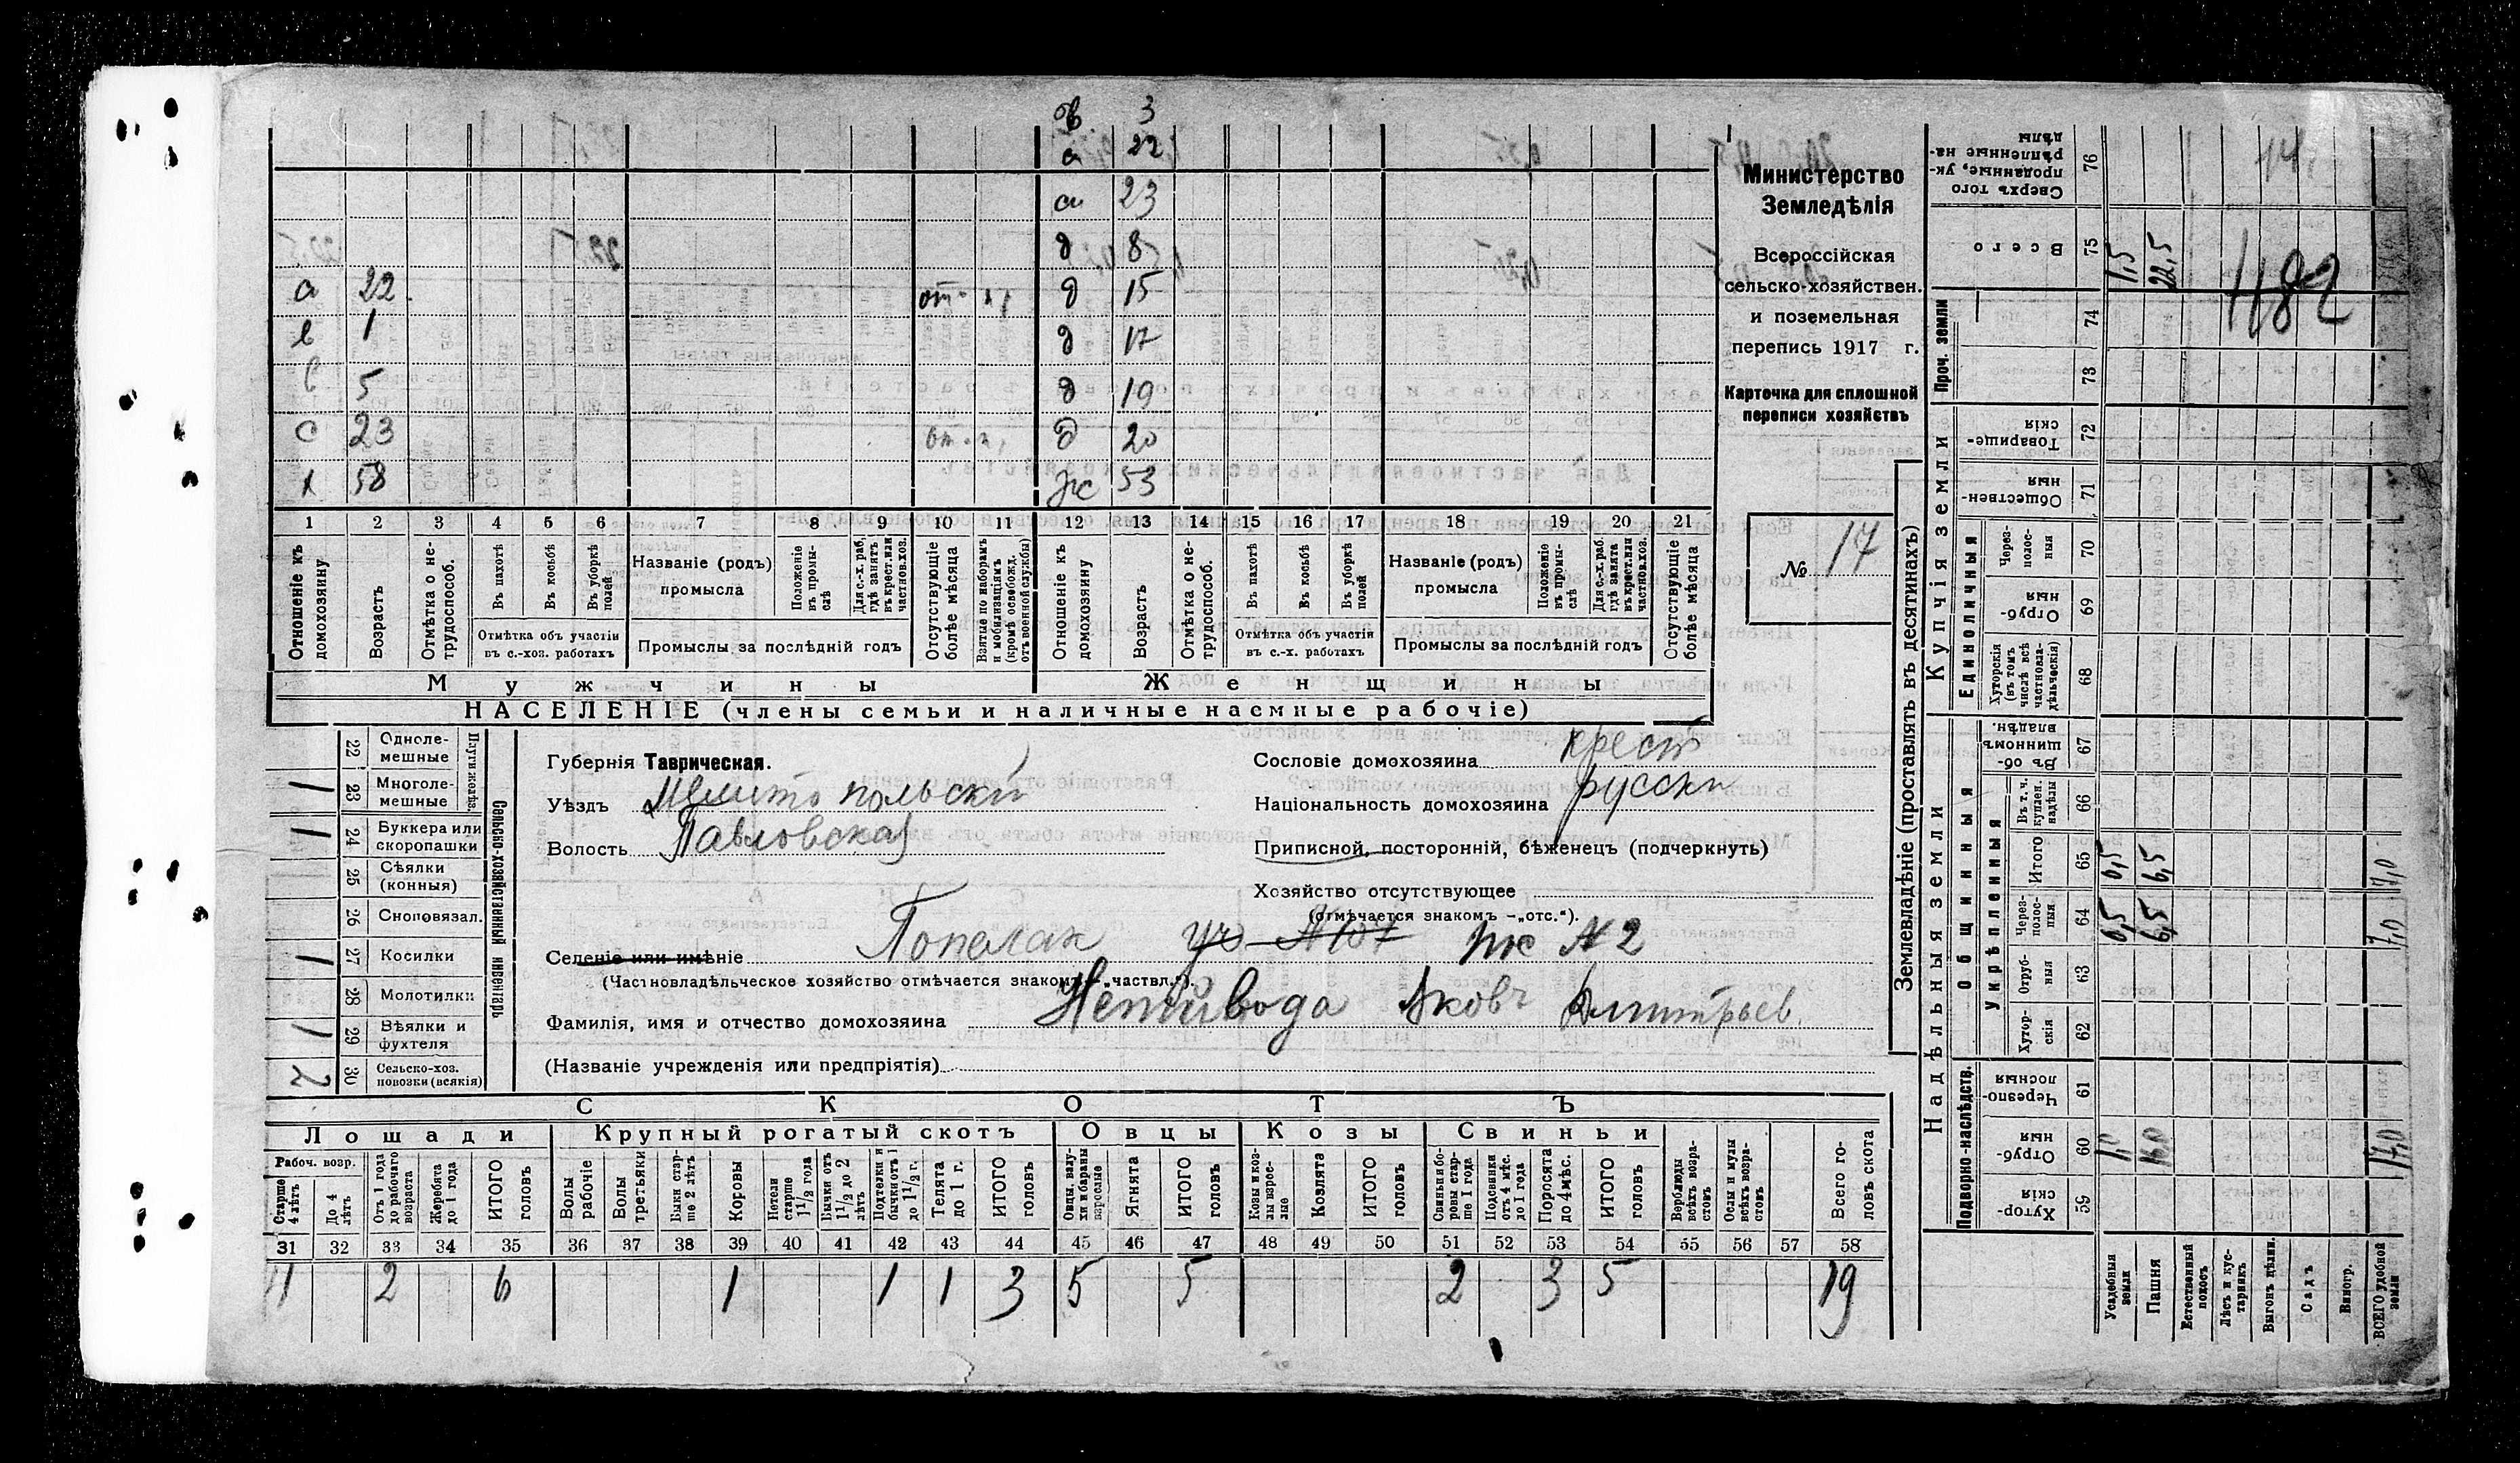 в 3
а 22
а 23
д 8
а 22 от. д 15
в 1 д 17
в 5 д 19
с 23 д 20
х 58 Ж 53
1 2 3 4 5 6 7 8 9 10 11 12 13 14 15 16 17 18 19 20 21
Отношеніе къ домохозяину.
Возрастъ
Отмѣтка о нетрудоспособ.
Въ пахотѣ
Въ косьбѣ
Въ уборкѣ полей
Отмѣтка объ участіи въ с.-хоз. работахъ
Названіе (родъ) промысла
Положеніе въ промыслѣ
Для с.-х. раб. гдѣ занятъ въ крест. или частнов. хоз.
Промыслы за послѣдній годъ
Отсутствующіе болѣе мѣсяца
Взятые по наборамъ и мобилизаціямъ (кромѣ освобожд. отъ военной службы)
Отношеніе къ домохозяину
Возрастъ
Отмѣтка о нетрудоспособ.
Въ пахотѣ
Въ косьбѣ
Въ уборкѣ полей
Отмѣтка объ участіи въ с.-х. работахъ
Названіе (родъ) промысла
Положеніе въ промыслѣ
Для с.-х. раб. гдѣ занята въ крест. или частнов. хоз.
Промыслы за послѣдній годъ
Отсутствующіе болѣе мѣсяца
Мужчины
Женщины
НАСЕЛЕНІЕ (члены семьи и наличные наемные рабочіе)
Министерство
Земледѣлія
Всероссійская
сельско-хозяйствен.
и поземельная
перепись 1917 г.
Карточка для сплошной
переписи хозяйствъ
№ 17
Сельско-хозяйственный инвентарь
Плуги желѣз.
22 Однолемешные
1 23 Многолемешные
1 24 Буккера или скоропашки
25 Сѣялки (конныя)
26 Сноповязал.
1 27 Косилки
28 Молотилки
1 29 Вѣялки и фухтеля
2 30 Сельско-хоз. повозки (всякія)
Губернія Таврическая.
Уѣздъ Мелитопольскій
Волость Павловская
Сословіе домохозяина крест
Національность домохозяина русски
Приписной, посторонній, бѣженецъ (подчеркнуть)
Хозяйство отсутствующее
(отмѣчается знакомъ –„отс.“).
Селеніе или имѣніе Пополак уч. № 2
(Частновладѣльческое хозяйство отмѣчается знакомъ „частвл.“).
Фамилія, имя и отчество домохозяина Непийвода Яковъ Дмитріев.
(Названіе учрежденія или предпріятія)
СКОТЪ
Лошади Крупный рогатый скотъ Овцы Козы Свиньи
Рабоч. возр.
Старше 4 лѣтъ
До 4 лѣтъ
Отъ 1 года до рабочаго возраста
Жеребята до 1 года
ИТОГО головъ
Волы рабочіе
Волы третьяки
Быки старше 2 лѣтъ
Коровы
Нетели старше 1 1/2 года
Бычки отъ 1 1/2 до 2 лѣтъ
Подтелки и бычки отъ 1 до 1 1/2 г.
Телята до 1 г.
ИТОГО головъ
Овцы, валухи и бараны взрослые
Ягнята
ИТОГО головъ
Козы и козлы взрослые
Козлята
ИТОГО головъ
Свиньи боровы старше 1 года
Подсвинки отъ 4 мѣс. до 1 года
Поросята до 4 мѣс.
ИТОГО головъ
Верблюды всѣхъ возрастовъ
Ослы и мулы всѣхъ возрастовъ
Всего головъ скота
31 32 33 34 35 36 37 38 39 40 41 42 43 44 45 46 47 48 49 50 51 52 53 54 55 56 57 58
4 2 6 1 1 1 3 5 5 2 3 5 19
Землевладѣніе (проставлять въ десятинахъ)
Надѣльныя земли
Купчія земли
Проч. земли
Подворно-наслѣдств.
Общинныя
укрѣпленныя
Единоличныя
Сверхъ того проданные, укрѣпленные надѣлы 76
Всего 75 1,5 22,5
74
73
Товарищескія 72
Общественныя 71
Черезполосныя 70
Отрубныя 69
Хуторскія (въ томъ числѣ всѣ частновладѣльческія) 68
Въ общинномъ владѣн. 67
Въ т. ч. куплен. надѣлы 66
Итого 65 0,5 6,5 7,0
Черезполосныя 64 0,5 6,5 7,0
Отрубныя 63
Хуторскія 62
Черезполосныя 61
Отрубныя 60 1,0 16,0 17,0
Хуторскія 59
Усадебныя земли
Пашня
Естественный покосъ
Лѣсъ и кустарникъ
Выгонъ цѣлин.
Садъ
Виногр.
ВСЕГО удобной земли
482